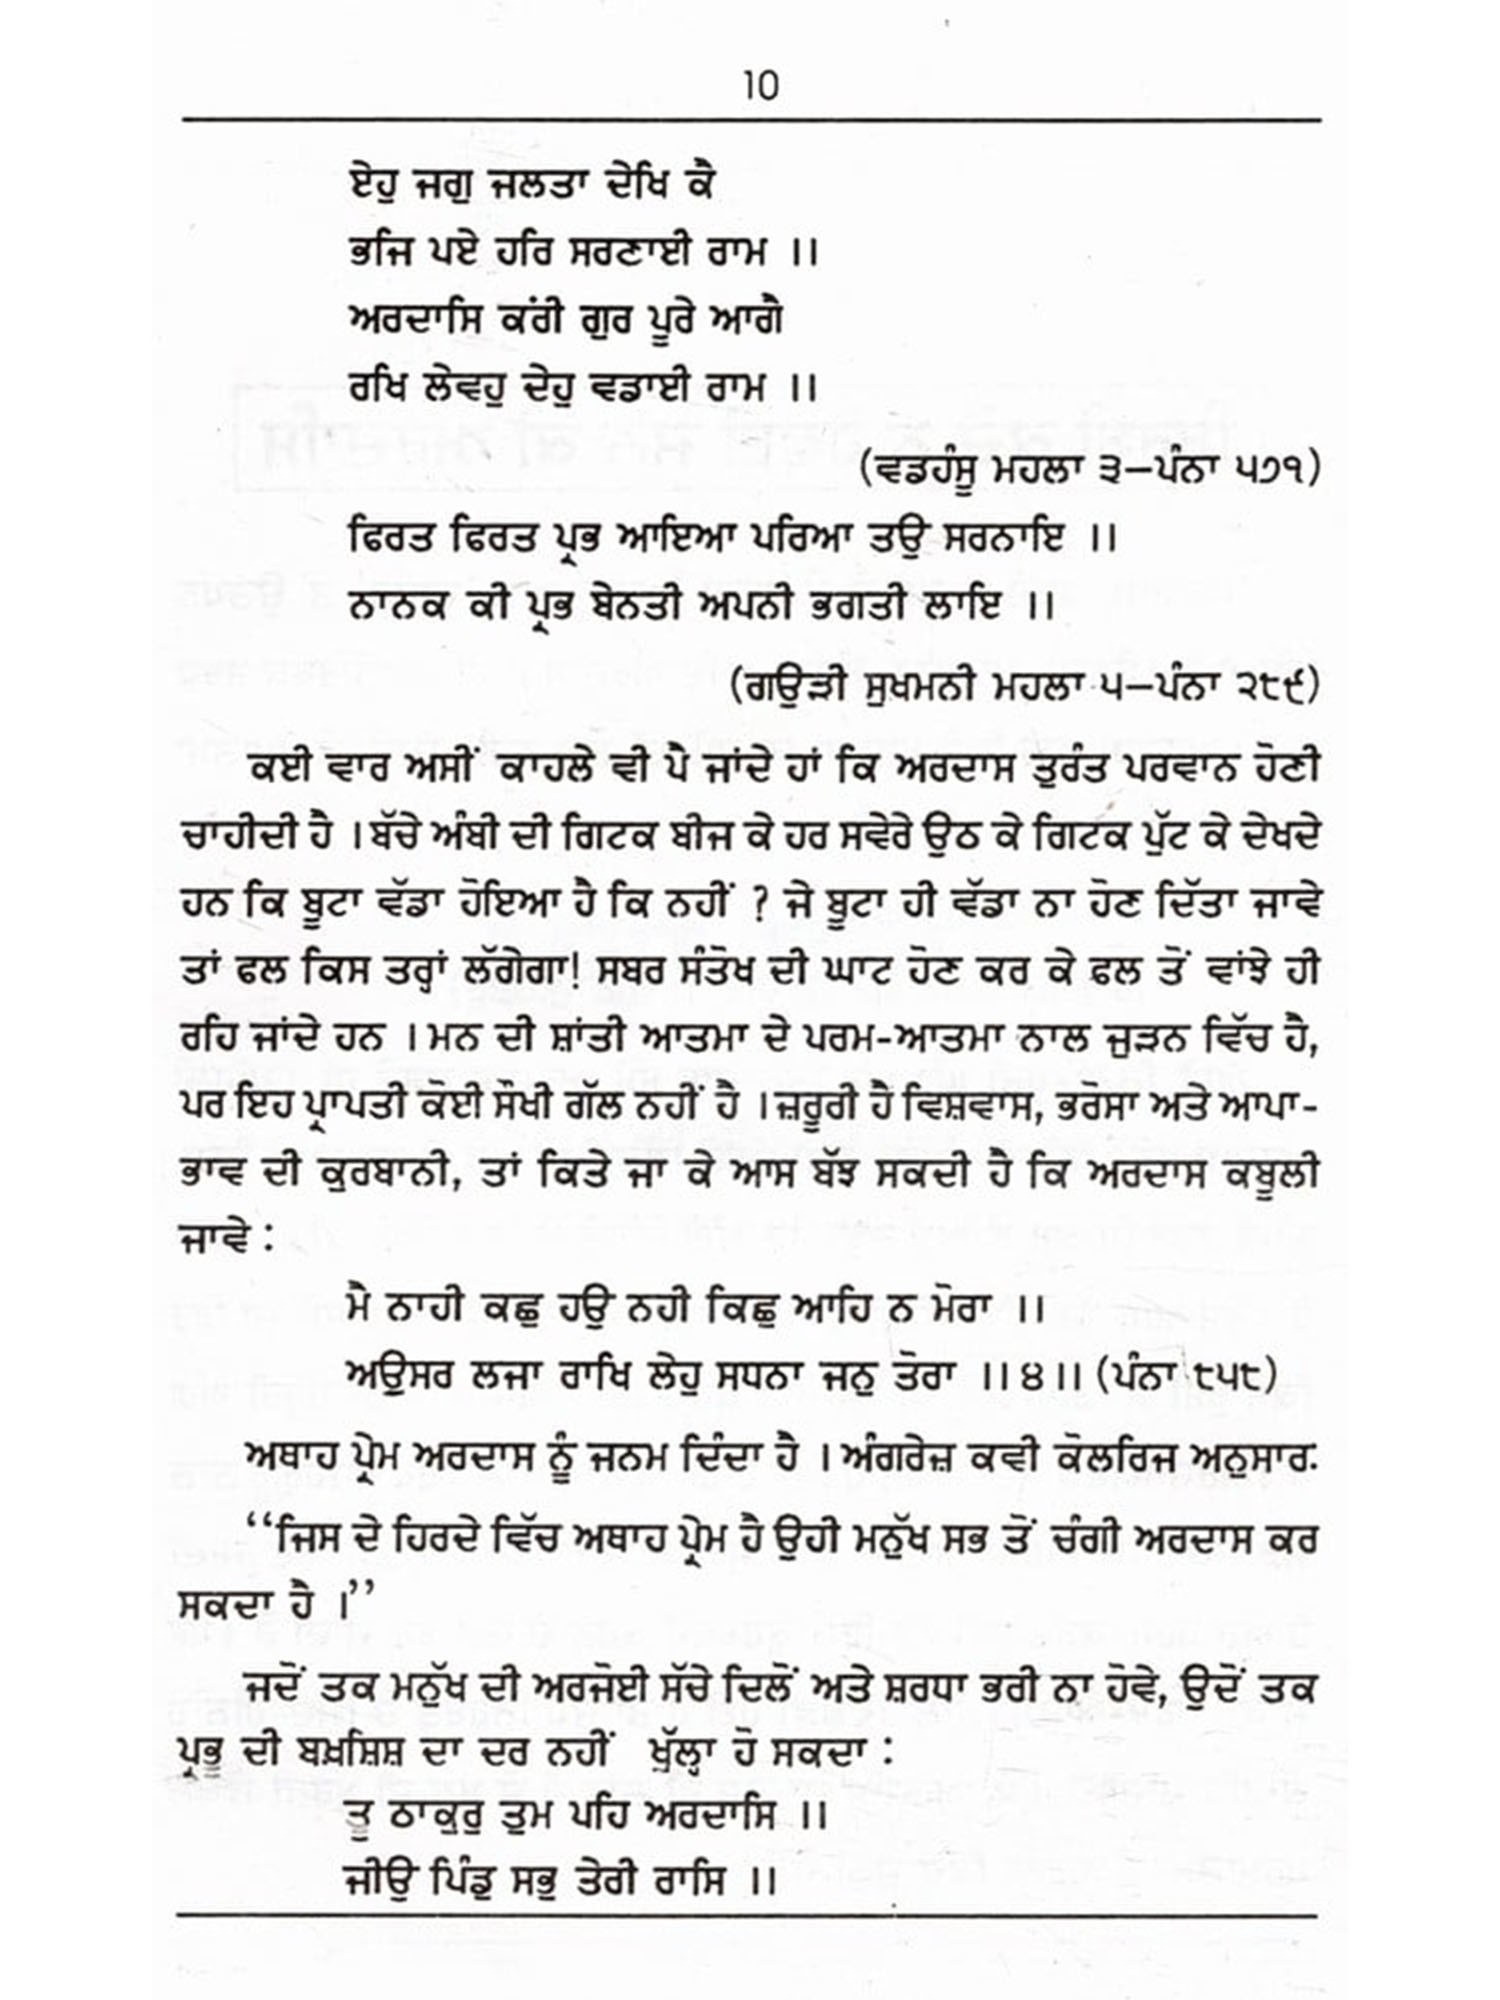 10
ਏਹੁ ਜਗੁ ਜਲਤਾ ਦੇਖਿ ਕੈ
ਭਜਿ ਪਏ ਹਰਿ ਸਰਣਾਈ ਰਾਮ ।।
ਅਰਦਾਸਿ ਕਰੀਂ ਗੁਰ ਪੂਰੇ ਆਗੈ
ਰਖਿ ਲੇਵਹੁ ਦੇਹੁ ਵਡਾਈ ਰਾਮ ।।
(ਵਡਹੰਸੁ ਮਹਲਾ ੩–ਪੰਨਾ ੫੭੧)
ਫਿਰਤ ਫਿਰਤ ਪ੍ਰਭ ਆਇਆ ਪਰਿਆ ਤਉ ਸਰਨਾਇ ।।
ਨਾਨਕ ਕੀ ਪ੍ਰਭ ਬੇਨਤੀ ਅਪਨੀ ਭਗਤੀ ਲਾਇ ।।
(ਗਉੜੀ ਸੁਖਮਨੀ ਮਹਲਾ ੫–ਪੰਨਾ ੨੮੯)
ਕਈ ਵਾਰ ਅਸੀਂ ਕਾਹਲੇ ਵੀ ਪੈ ਜਾਂਦੇ ਹਾਂ ਕਿ ਅਰਦਾਸ ਤੁਰੰਤ ਪਰਵਾਨ ਹੋਣੀ
ਚਾਹੀਦੀ ਹੈ । ਬੱਚੇ ਅੰਬੀ ਦੀ ਗਿਟਕ ਬੀਜ ਕੇ ਹਰ ਸਵੇਰੇ ਉਠ ਕੇ ਗਿਟਕ ਪੁੱਟ ਕੇ ਦੇਖਦੇ
ਹਨ ਕਿ ਬੂਟਾ ਵੱਡਾ ਹੋਇਆ ਹੈ ਕਿ ਨਹੀਂ ? ਜੇ ਬੂਟਾ ਹੀ ਵੱਡਾ ਨਾ ਹੋਣ ਦਿੱਤਾ ਜਾਵੇ
ਤਾਂ ਫਲ ਕਿਸ ਤਰ੍ਹਾਂ ਲੱਗੇਗਾ! ਸਬਰ ਸੰਤੋਖ ਦੀ ਘਾਟ ਹੋਣ ਕਰ ਕੇ ਫ਼ਲ ਤੋਂ ਵਾਂਝੇ ਹੀ
ਰਹਿ ਜਾਂਦੇ ਹਨ । ਮਨ ਦੀ ਸ਼ਾਂਤੀ ਆਤਮਾ ਦੇ ਪਰਮ-ਆਤਮਾ ਨਾਲ ਜੁੜਨ ਵਿੱਚ ਹੈ,
ਪਰ ਇਹ ਪ੍ਰਾਪਤੀ ਕੋਈ ਸੌਖੀ ਗੱਲ ਨਹੀਂ ਹੈ । ਜ਼ਰੂਰੀ ਹੈ ਵਿਸ਼ਵਾਸ, ਭਰੋਸਾ ਅਤੇ ਆਪਾ-
ਭਾਵ ਦੀ ਕੁਰਬਾਨੀ, ਤਾਂ ਕਿਤੇ ਜਾ ਕੇ ਆਸ ਬੱਝ ਸਕਦੀ ਹੈ ਕਿ ਅਰਦਾਸ ਕਬੂਲੀ
ਜਾਵੇ :
ਮੈ ਨਾਹੀ ਕਛੁ ਹਉ ਨਹੀ ਕਿਛੁ ਆਹਿ ਨ ਮੋਰਾ ।।
ਅਉਸਰ ਲਜਾ ਰਾਖਿ ਲੇਹੁ ਸਧਨਾ ਜਨੁ ਤੋਰਾ ।।੪।। (ਪੰਨਾ ੮੫੮)
ਅਥਾਹ ਪ੍ਰੇਮ ਅਰਦਾਸ ਨੂੰ ਜਨਮ ਦਿੰਦਾ ਹੈ । ਅੰਗਰੇਜ਼ ਕਵੀ ਕੋਲਰਿਜ ਅਨੁਸਾਰ:
“ਜਿਸ ਦੇ ਹਿਰਦੇ ਵਿੱਚ ਅਥਾਹ ਪ੍ਰੇਮ ਹੈ ਉਹੀ ਮਨੁੱਖ ਸਭ ਤੋਂ ਚੰਗੀ ਅਰਦਾਸ ਕਰ
ਸਕਦਾ ਹੈ ।”
ਜਦੋਂ ਤਕ ਮਨੁੱਖ ਦੀ ਅਰਜੋਈ ਸੱਚੇ ਦਿਲੋਂ ਅਤੇ ਸ਼ਰਧਾ ਭਰੀ ਨਾ ਹੋਵੇ, ਉਦੋਂ ਤਕ
ਪ੍ਰਭੂ ਦੀ ਬਖ਼ਸ਼ਿਸ਼ ਦਾ ਦਰ ਨਹੀਂ ਖੁੱਲ੍ਹਾ ਹੋ ਸਕਦਾ :
ਤੂ ਠਾਕੁਰੁ ਤੁਮ ਪਹਿ ਅਰਦਾਸਿ ।।
ਜੀਉ ਪਿੰਡੁ ਸਭੁ ਤੇਰੀ ਰਾਸਿ ।।